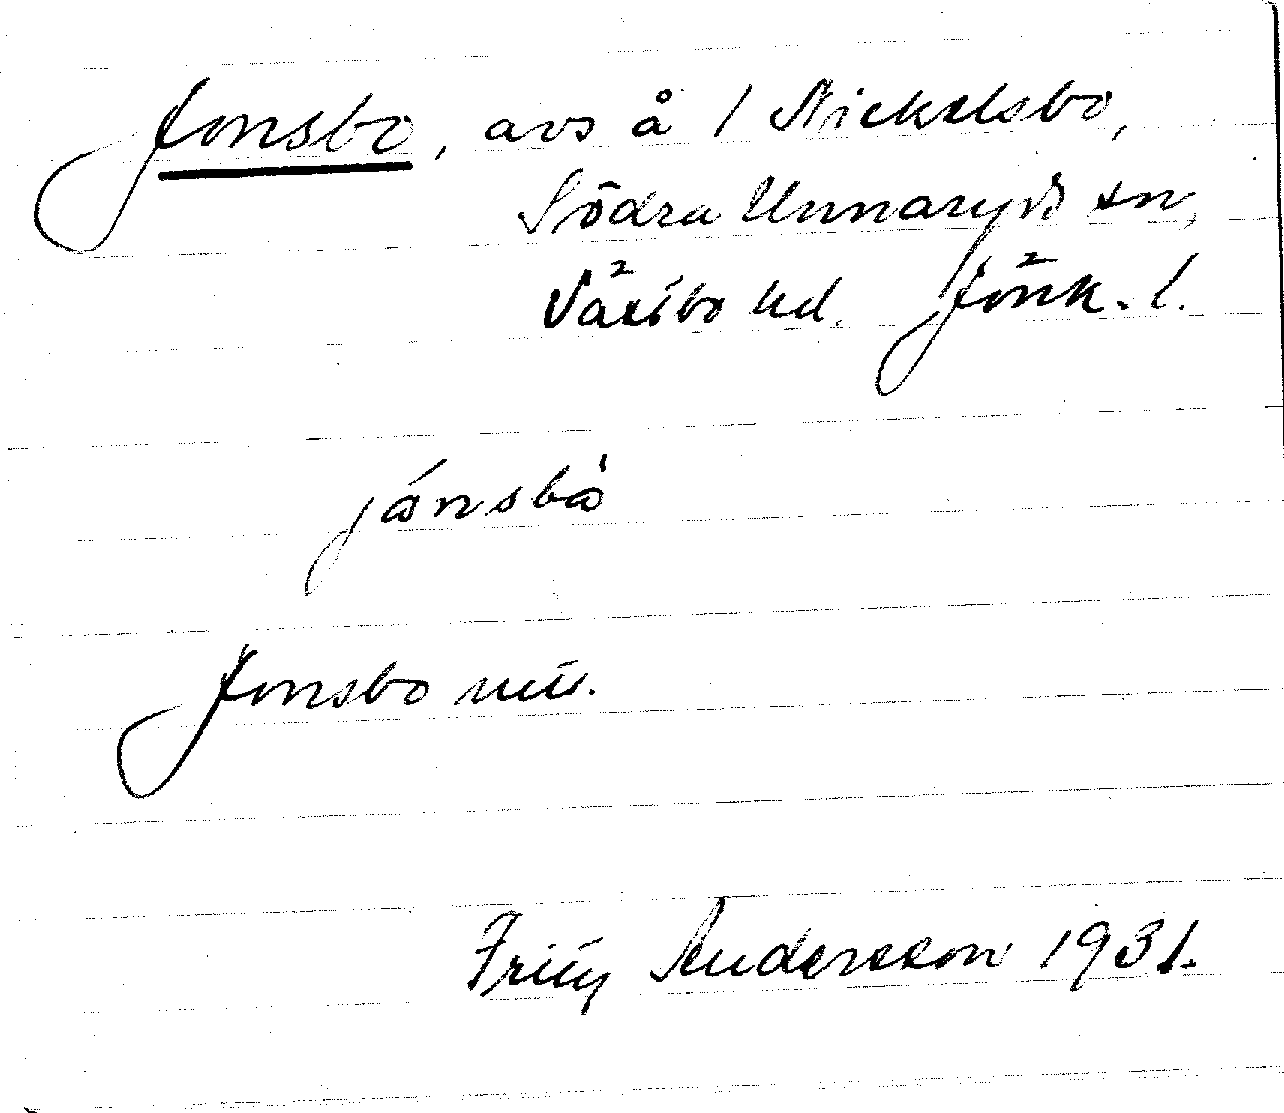 Jonsbo, avs å 1 Nickelsbo,
Södra Unnaryds sn,
Västbo hd. Jönk. l.
jånsbå
Jonsbo
Fritz Andersson 1931.